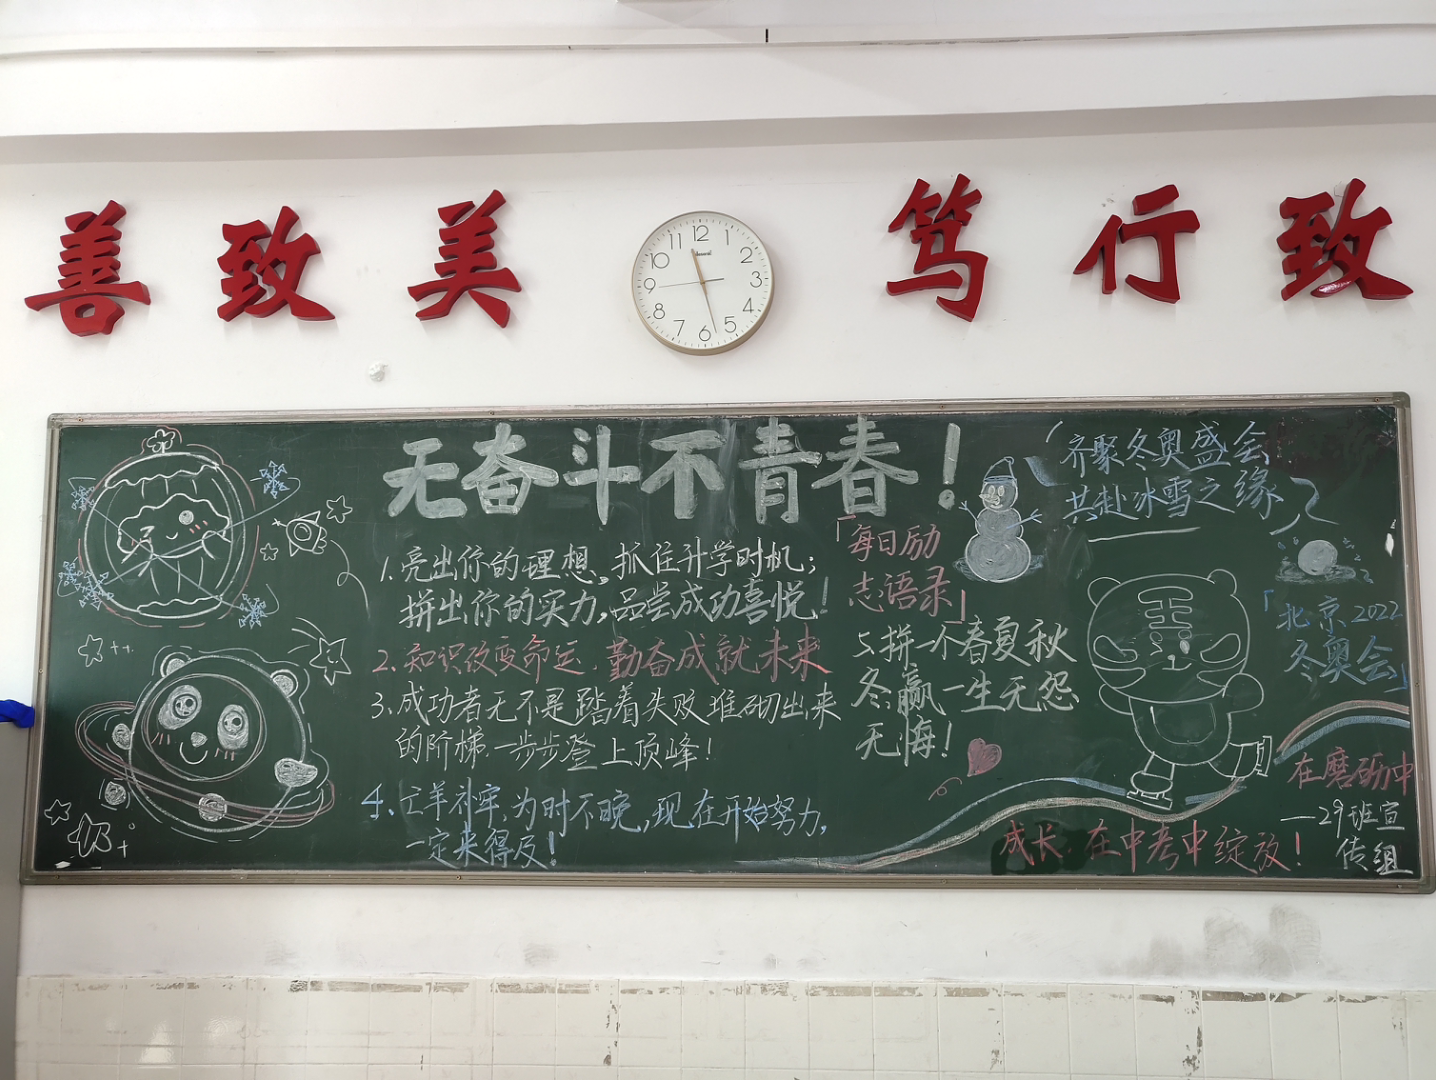 善致美
笃行致
12
1
2
3
4
5
6
7
8
9
10
11
无奋斗不青春！
1.亮出你的理想，抓住升学时机；
拼出你的实力，品尝成功喜悦！
2.知识改变命运，勤奋成就未来
3.成功者无不是踏着失败堆砌出来
的阶梯.一步步登上顶峰！
4、亡羊补牢，为时不晚，现在开始努力，
一定来得及！
「每日励
志语录」
5.拼一个春夏秋
冬，赢一生无怨
无悔！
齐聚冬奥盛会
共赴冰雪之缘
「北京2022
冬奥会」
在磨砺中
成长，在中考中绽放！
—29班宣
传组